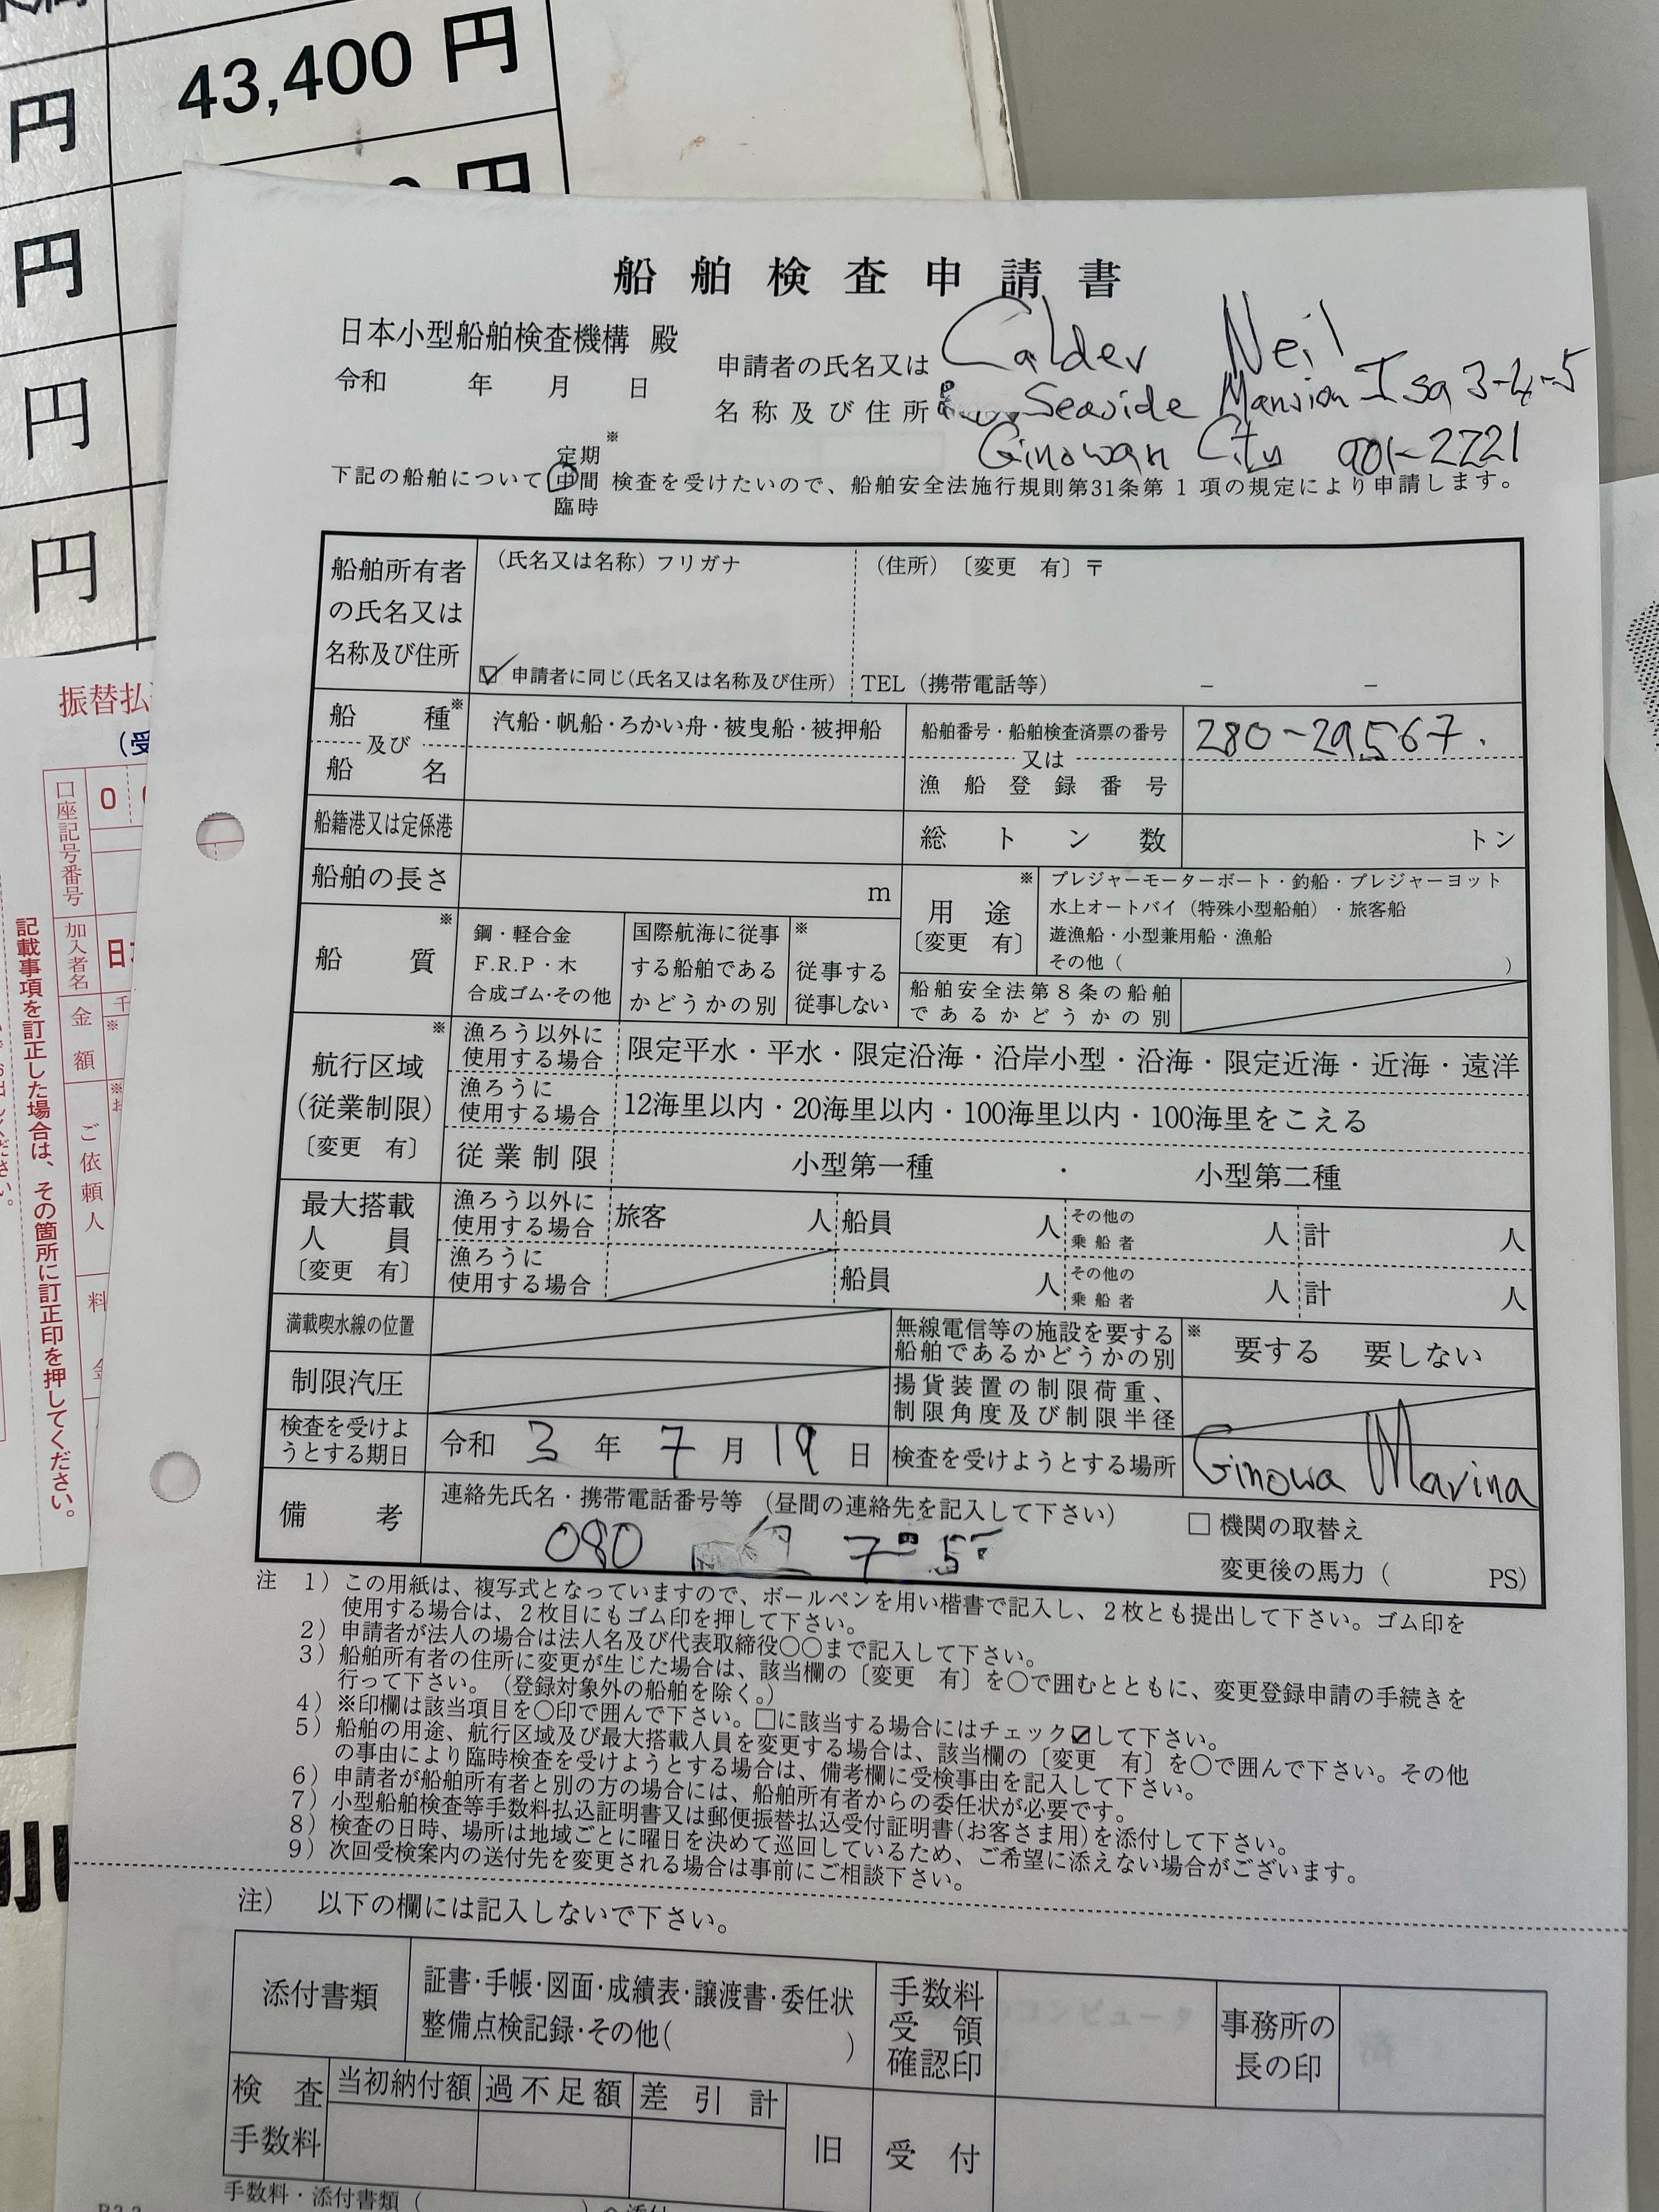 43,400 円
円
円
円
円
円
船舶検査申請書
日本小型船舶検査機構 殿
令和 年 月 日
申請者の氏名又は
名称及び住所
Calder Neil
Seaside Mansion Isa 3-4-5
Ginowan City 901-2221
定期※
下記の船舶について 中間 検査を受けたいので、船舶安全法施行規則第31条第1項の規定により申請します。
臨時
船舶所有者
の氏名又は
名称及び住所
(氏名又は名称)フリガナ
(住所)〔変更 有〕〒
☑申請者に同じ(氏名又は名称及び住所)
TEL(携帯電話等) − −
船種※
及び
船名
汽船・帆船・ろかい舟・被曳船・被押船
船舶番号・船舶検査済票の番号
又は
漁船登録番号
280-29567.
船籍港又は定係港
総トン数 トン
船舶の長さ m
※
用途
〔変更 有〕
プレジャーモーターボート・釣船・プレジャーヨット
水上オートバイ(特殊小型船舶)・旅客船
遊漁船・小型兼用船・漁船
その他( )
※
船質
鋼・軽合金
F.R.P・木
合成ゴム・その他
国際航海に従事
する船舶である
かどうかの別
※
従事する
従事しない
船舶安全法第8条の船舶
であるかどうかの別
※
航行区域
(従業制限)
〔変更 有〕
漁ろう以外に
使用する場合
限定平水・平水・限定沿海・沿岸小型・沿海・限定近海・近海・遠洋
漁ろうに
使用する場合
12海里以内・20海里以内・100海里以内・100海里をこえる
従業制限
小型第一種 ・ 小型第二種
最大搭載
人員
〔変更 有〕
漁ろう以外に
使用する場合
旅客 人 船員 人 その他の乗船者 人 計 人
漁ろうに
使用する場合
船員 人 その他の乗船者 人 計 人
満載喫水線の位置
無線電信等の施設を要する
船舶であるかどうかの別
※ 要する 要しない
制限汽圧
揚貨装置の制限荷重、
制限角度及び制限半径
検査を受けよ
うとする期日
令和 3 年 7 月 19 日
検査を受けようとする場所
Ginowa Marina
備考
連絡先氏名・携帯電話番号等 (昼間の連絡先を記入して下さい)
080
□ 機関の取替え
変更後の馬力( PS)
注 1)この用紙は、複写式となっていますので、ボールペンを用い楷書で記入し、2枚とも提出して下さい。ゴム印を
使用する場合は、2枚目にもゴム印を押して下さい。
2)申請者が法人の場合は法人名及び代表取締役○○まで記入して下さい。
3)船舶所有者の住所に変更が生じた場合は、該当欄の〔変更 有〕を○で囲むとともに、変更登録申請の手続きを
行って下さい。(登録対象外の船舶を除く。)
4)※印欄は該当項目を○印で囲んで下さい。□に該当する場合にはチェック☑して下さい。
5)船舶の用途、航行区域及び最大搭載人員を変更する場合は、該当欄の〔変更 有〕を○で囲んで下さい。その他
の事由により臨時検査を受けようとする場合は、備考欄に受検事由を記入して下さい。
6)申請者が船舶所有者と別の方の場合には、船舶所有者からの委任状が必要です。
7)小型船舶検査等手数料払込証明書又は郵便振替払込受付証明書(お客さま用)を添付して下さい。
8)検査の日時、場所は地域ごとに曜日を決めて巡回しているため、ご希望に添えない場合がございます。
9)次回受検案内の送付先を変更される場合は事前にご相談下さい。
注) 以下の欄には記入しないで下さい。
添付書類
証書・手帳・図面・成績表・譲渡書・委任状
整備点検記録・その他( )
手数料
受領
確認印
事務所の
長の印
検査
手数料
当初納付額
過不足額
差引計
旧
受付
手数料・添付書類(
振替払
(受
口座記号番号
0
加入者名
日
金額
千
※
ご依頼人
料
記載事項を訂正した場合は、その箇所に訂正印を押してください。